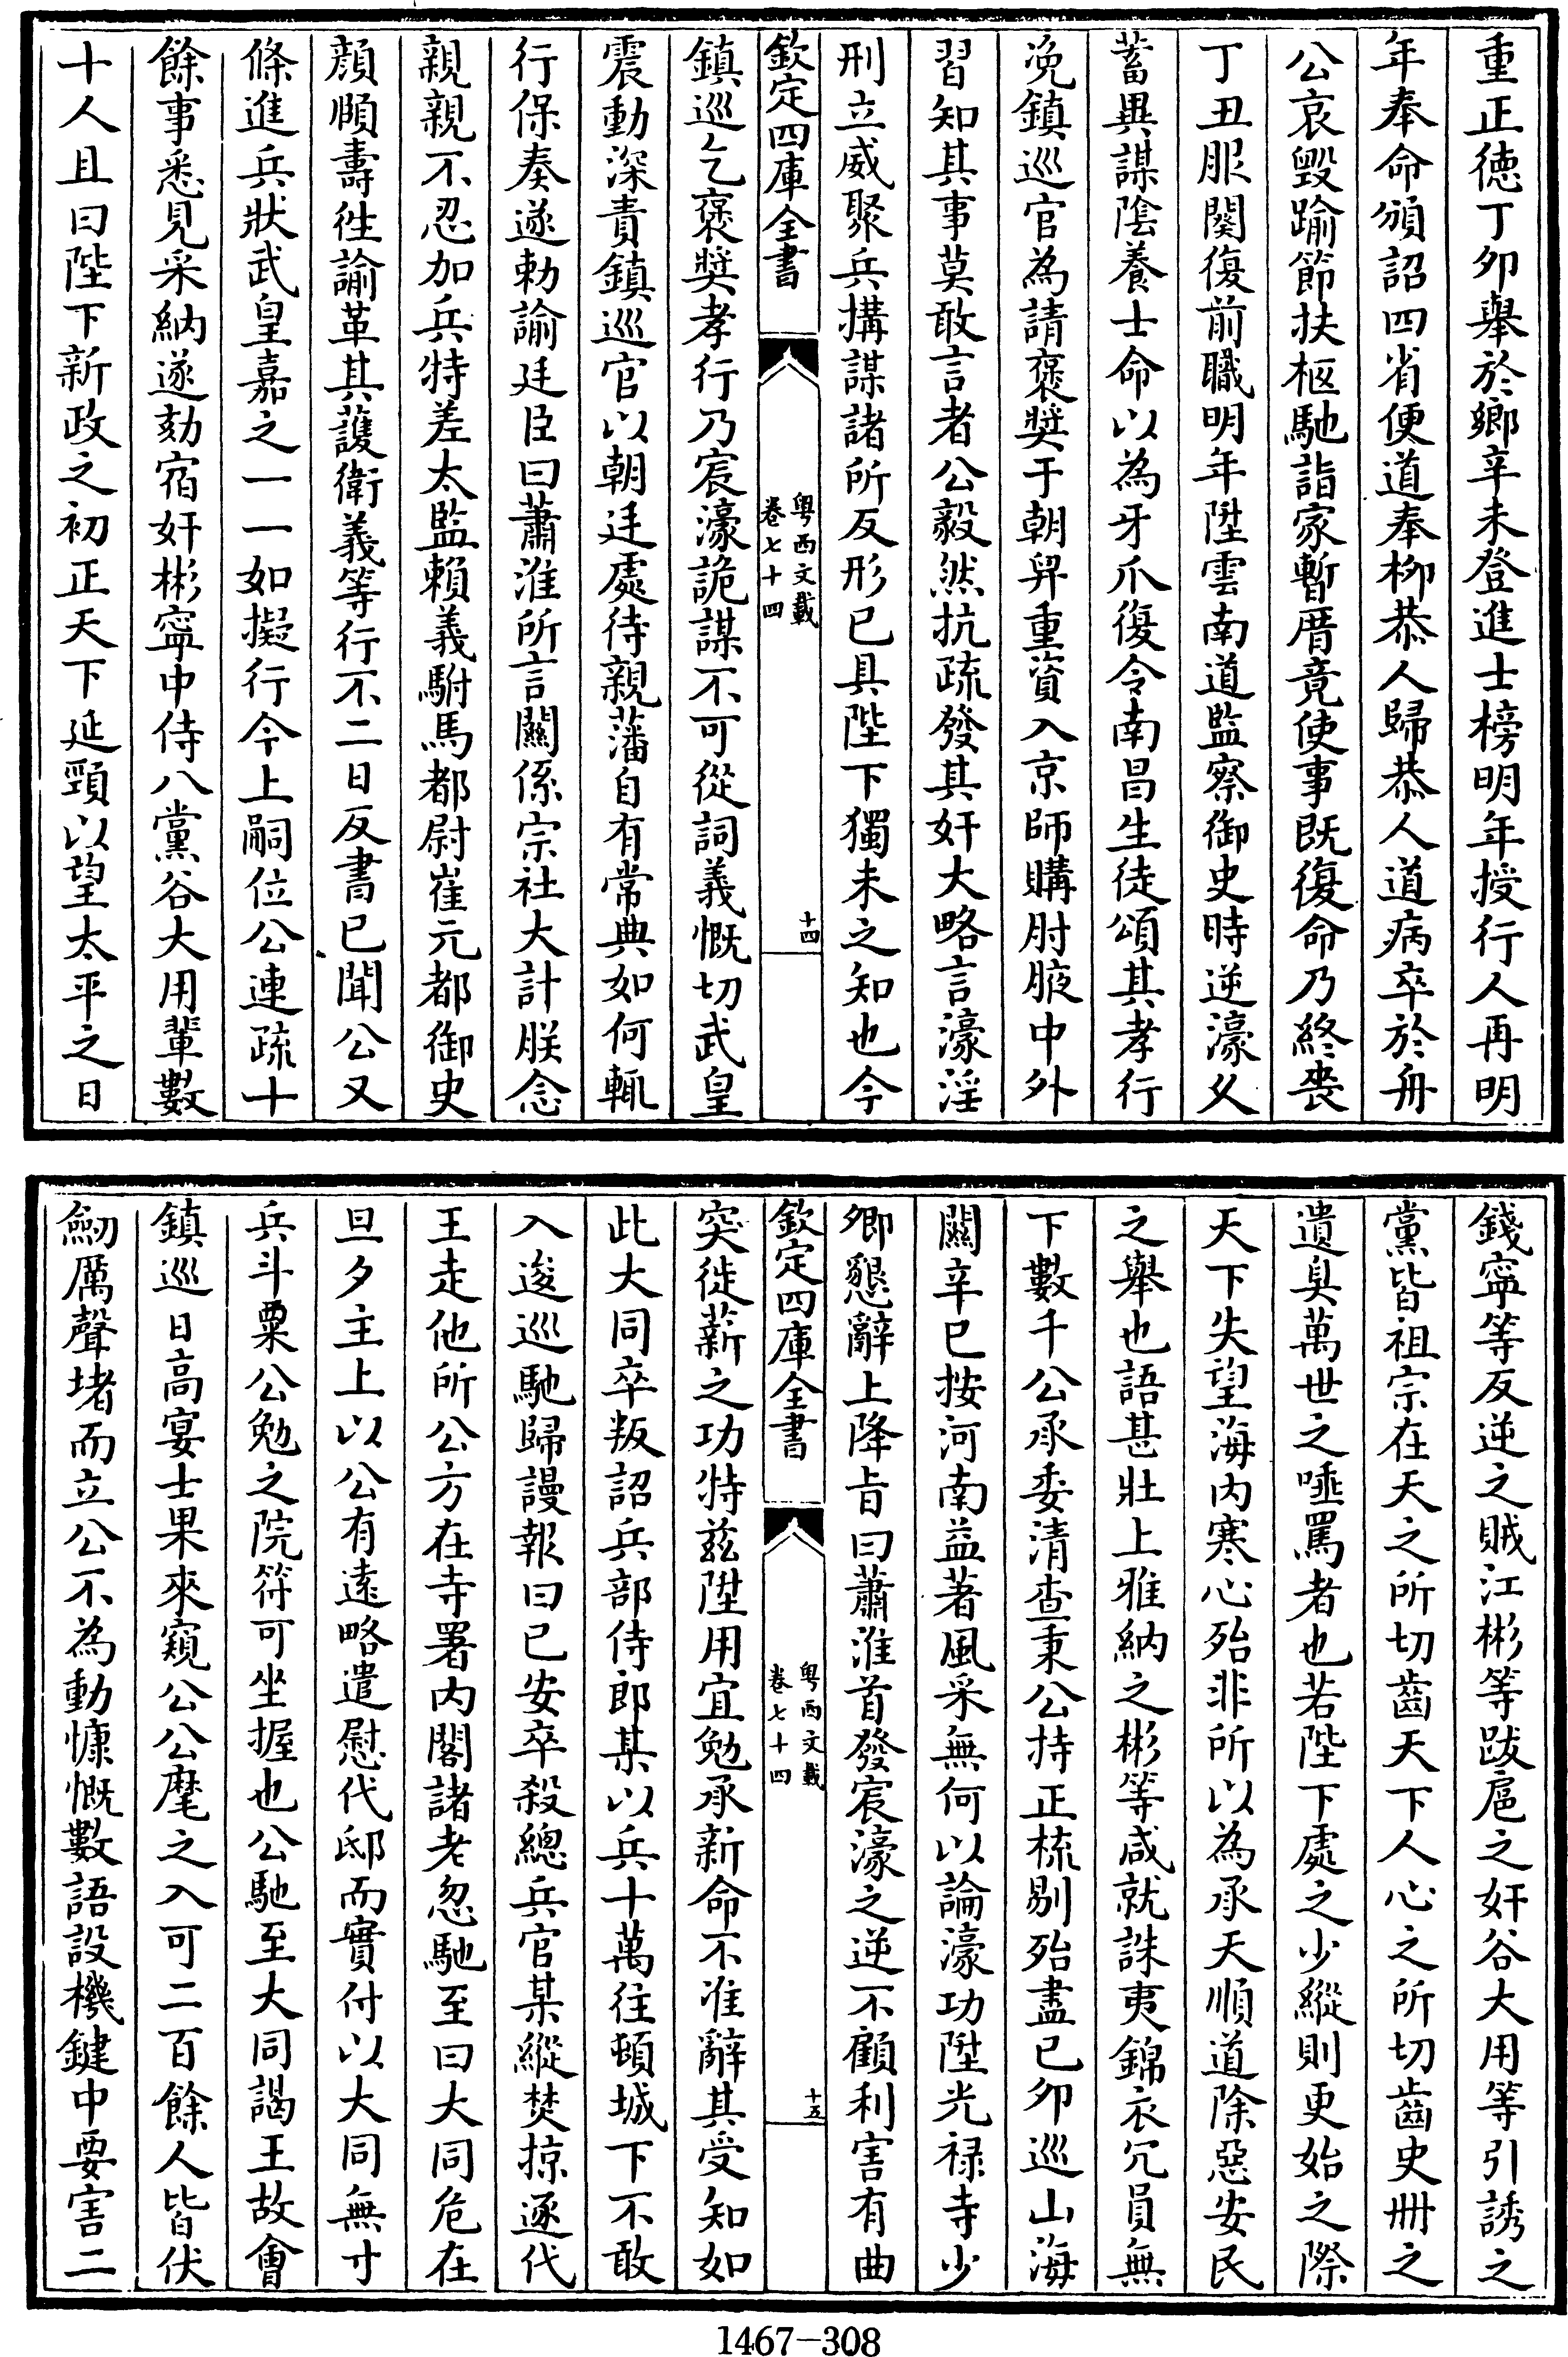 重正德丁卯舉於鄉辛未登進士榜明年授行人再明
年奉命頒詔四省便道奉柳恭人歸恭人道病卒於舟
公哀毀踰節扶柩馳詣家暫厝竟使事既復命乃終喪
丁丑服闋復前職明年陞雲南道監察御史時逆濠乆
蓄異謀陰養士命以為牙爪復令南昌生徒頌其孝行
浼鎮巡官為請褒奬于朝舁重資入京師購肘腋中外
習知其事莫敢言者公毅然抗疏發其奸大略言濠淫
刑立威聚兵搆謀諸所反形已具陛下獨未之知也今
欽定四庫全書
粤西文載
卷七十四
十四
鎮巡乞褒奬孝行乃宸濠詭謀不可從詞義慨切武皇
震動深責鎮巡官以朝廷處待親藩自有常典如何輒
行保奏遂勅諭廷臣曰蕭淮所言關係宗社大計朕念
親親不忍加兵特差太監賴義駙馬都尉崔元都御史
顔頤壽徃諭革其護衛義等行不二日反書已聞公又
條進兵狀武皇嘉之一一如擬行今上嗣位公連疏十
餘事悉見采納遂劾宿奸彬寜中侍八黨谷大用輩數
十人且曰陛下新政之初正天下延頸以望太平之日
錢寜等反逆之賊江彬等跋扈之奸谷大用等引誘之
黨皆祖宗在天之所切齒天下人心之所切齒史冊之
遺臭萬世之唾罵者也若陛下處之少縱則更始之際
天下失望海内寒心殆非所以為承天順道除惡安民
之舉也語甚壯上雅納之彬等咸就誅夷錦衣冗員無
下數千公承委清查秉公持正梳剔殆盡已卯巡山海
關辛巳按河南益著風采無何以論濠功陞光禄寺少
卿懇辭上降旨曰蕭淮首發宸濠之逆不顧利害有曲
欽定四庫全書
粤西文載
卷七十四
十五
突徙薪之功特兹陞用宜勉承新命不准辭其受知如
此大同卒叛詔兵部侍郎某以兵十萬往頓城下不敢
入逡巡馳歸謾報曰已安卒殺總兵官某縱焚掠逐代
王走他所公方在寺署内閣諸老忽馳至曰大同危在
旦夕主上以公有遠略遣慰代邸而實付以大同無寸
兵斗粟公勉之院符可坐握也公馳至大同謁王故會
鎮巡日高宴士果來窺公公麾之入可二百餘人皆伏
劒厲聲堵而立公不為動慷慨數語設機鍵中要害二
1467-308